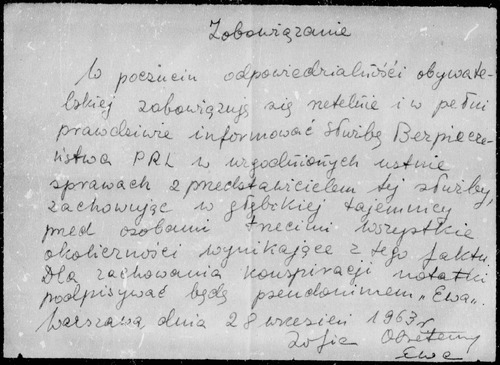 Zobowiązanie
W poczuciu odpowiedzialności obywate-
lskiej zobowiązuję się rzetelnie i w pełni
prawdziwie informować Służbę Bezpiecze-
ństwa PRL w uzgodnionych ustnie
sprawach z przedstawicielem tej służby,
zachowując w głębokiej tajemnicy
przed osobami trzecimi wszystkie
okoliczności wynikające z tego faktu.
Dla zachowania konspiracji notatki
podpisywać będę pseudonimem „Ewa".
Warszawa, dnia 28 wrzesień 1963 r.
Zofia
Ewa